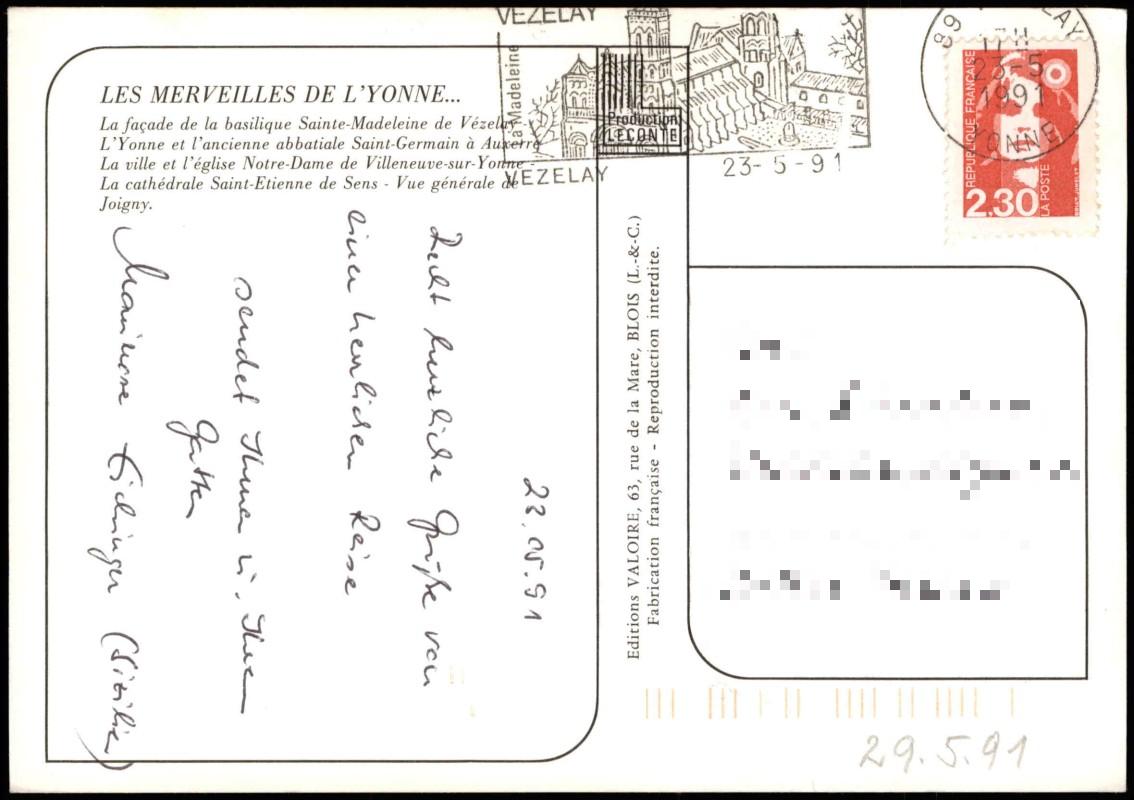 LES MERVEILLES DE L'YONNE...
La façade de la basilique Sainte-Madeleine de Vézelay
L'Yonne et l'ancienne abbatiale Saint-Germain à Auxerre
La ville et l'église Notre-Dame de Villeneuve-sur-Yonne
La cathédrale Saint-Etienne de Sens - Vue générale de
Joigny.
VEZELAY
La Madeleine
VEZELAY
23-5-91
Production
LECONTE
23-5
1991
YONNE
REPUBLIQUE FRANÇAISE
2,30
LA POSTE
22.05.91
Recht herzliche Grüße von
einer herrlichen Reise
sendet Ihnen u. Ihrem
Gatten
Marianne (Sizilien)
Editions VALOIRE, 63, rue de la Mare, BLOIS (L.-&-C.)
Fabrication française - Reproduction interdite.
29.5.91